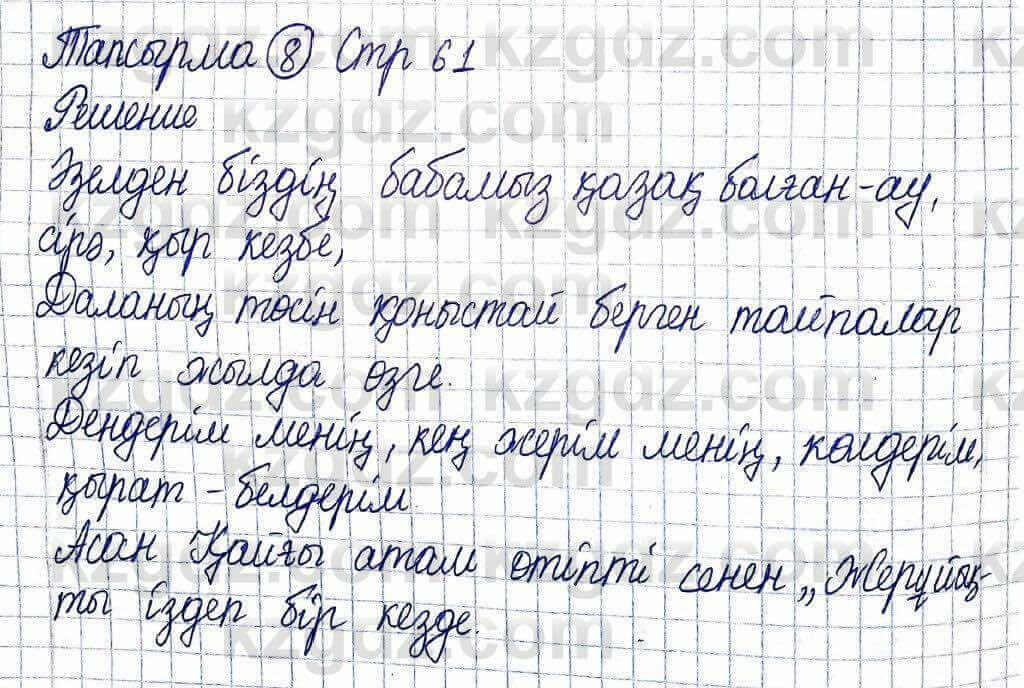 Тапсырма 8 Стр 61
Решение
Әзелден біздің бабамыз қазақ болған-ау,
сірә, қыр кезбе,
Даланың төсін қоныстай берген тайпалар
кезіп жылда өзге.
Дендерім менің, кең жерім менің, көлдерім,
қырат - белдерім.
Асан Қайғы атам өтіпті сенен „Жерұйық-
ты іздеп бір кезде.
kzgdz.com